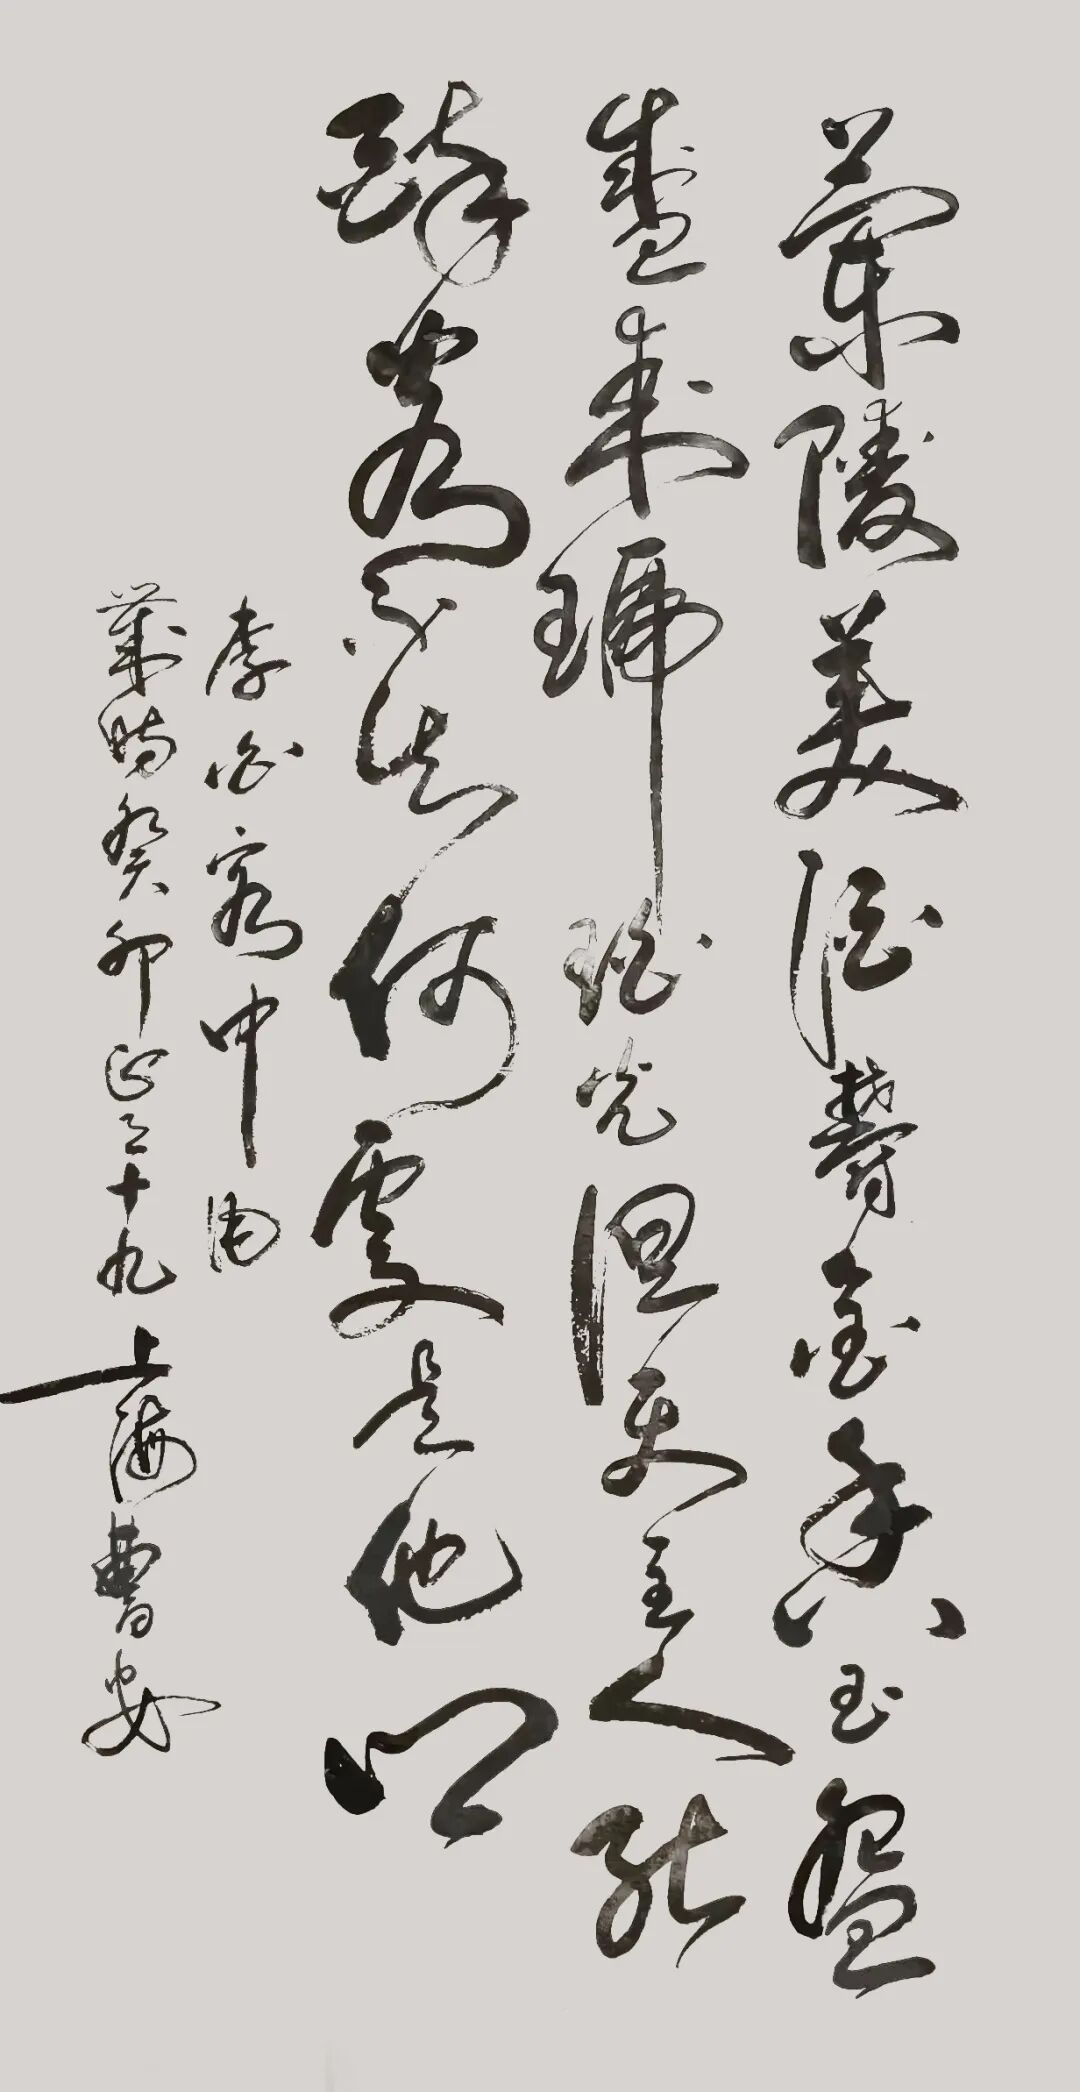 蘭陵美酒鬱金香玉盌
盛来琥珀光但使主人能
醉客不知何處是他鄉
李白客中
歲時癸卯正月十九上海曹安